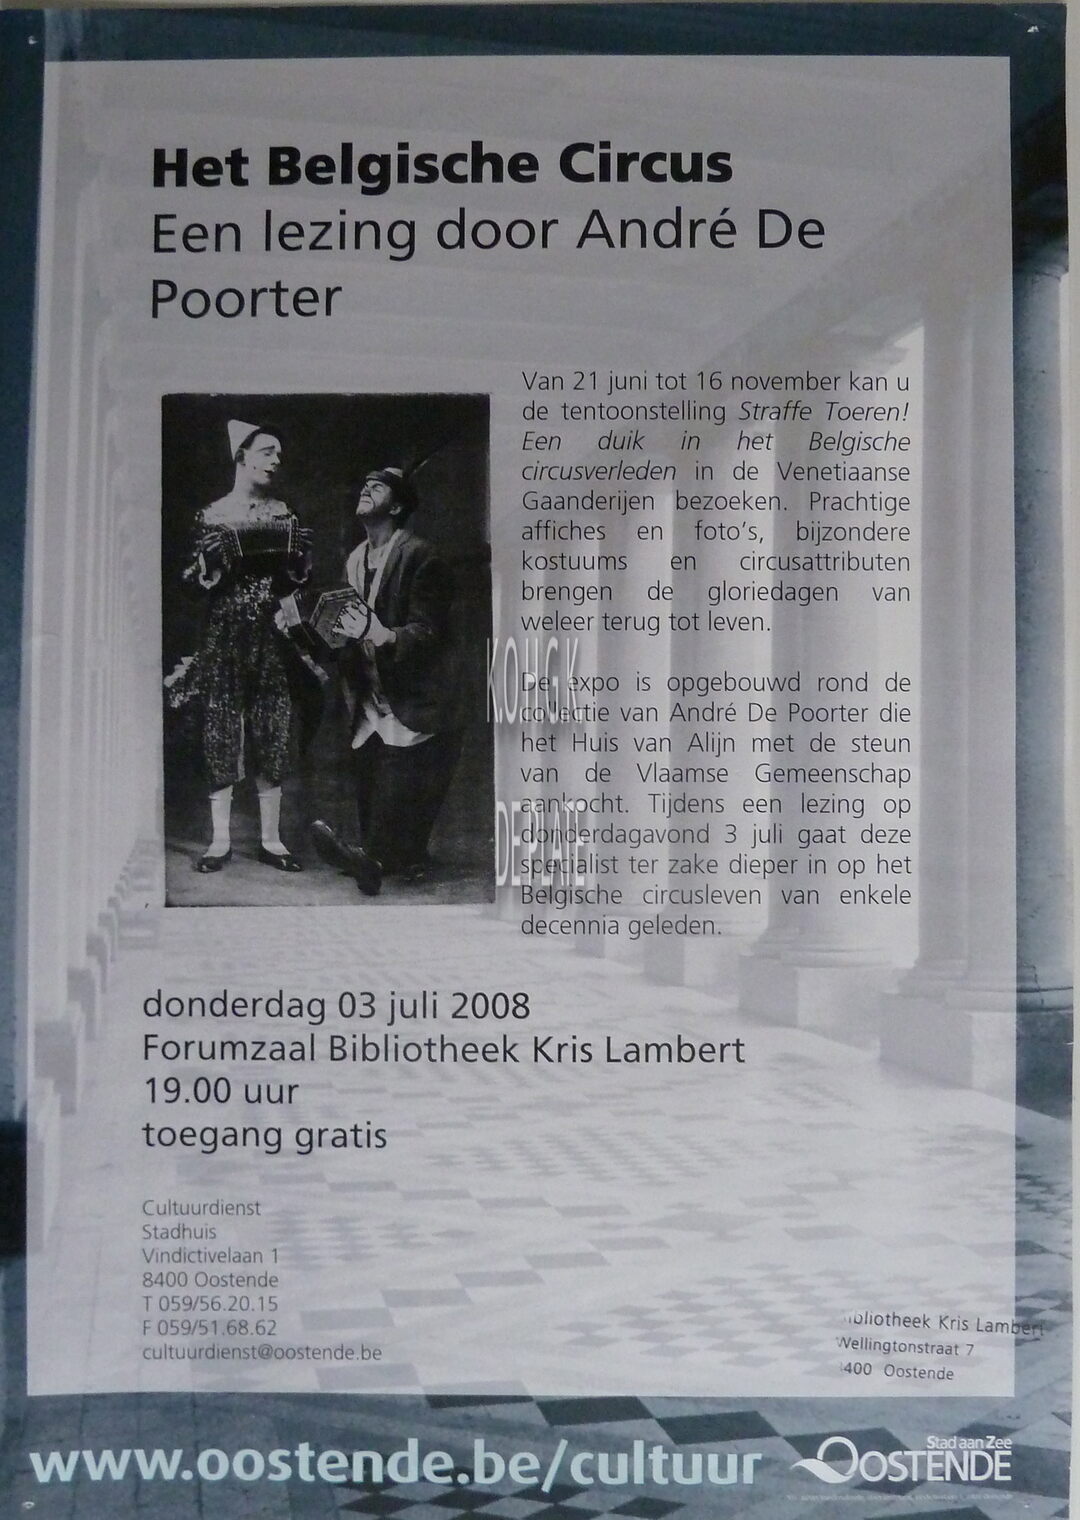 Het Belgische Circus
Een lezing door André De
Poorter
Van 21 juni tot 16 november kan u
de tentoonstelling Straffe Toeren!
Een duik in het Belgische
circusverleden in de Venetiaanse
Gaanderijen bezoeken. Prachtige
affiches en foto's, bijzondere
kostuums en circusattributen
brengen de gloriedagen van
weleer terug tot leven.
De expo is opgebouwd rond de
collectie van André De Poorter die
het Huis van Alijn met de steun
van de Vlaamse Gemeenschap
aankocht. Tijdens een lezing op
donderdagavond 3 juli gaat deze
specialist ter zake dieper in op het
Belgische circusleven van enkele
decennia geleden.
KOHGK
DEPLATE
donderdag 03 juli 2008
Forumzaal Bibliotheek Kris Lambert
19.00 uur
toegang gratis
Cultuurdienst
Stadhuis
Vindictivelaan 1
8400 Oostende
T 059/56.20.15
F 059/51.68.62
cultuurdienst@oostende.be
bliotheek Kris Lambert
Wellingtonstraat 7
400 Oostende
www.oostende.be/cultuur
Stad aan Zee
OOSTENDE